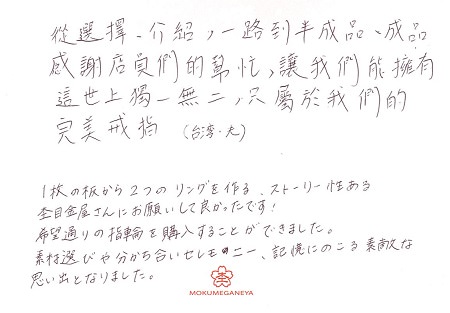 從選擇、介紹,一路到半成品、成品
感謝店員們的幫忙,讓我們能擁有
這世上獨一無二,只屬於我們的
完美戒指 (台湾・丸)
1枚の板から2つのリングを作る、ストーリー性ある
杢目金屋さんにお願いして良かったです!
希望通りの指輪を購入することができました。
素材選びや分かち合いセレモニー、記憶にのこる素敵な
思い出となりました。
MOKUMEGANEYA